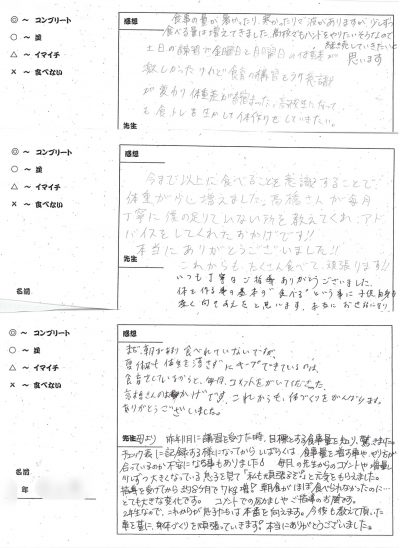 ◎ ～ コンプリート
○ ～ 良
△ ～ イマイチ
× ～ 食べない
感想
食事の量が多かったり、少しずつ
食べる量は増えてきました。高校でもハンドをやりたいそうなので
継続していきたいと
思います
土日の練習で金曜日と月曜日の体重差が
激しかったけれど食育の講習をうけ意識
が変わり体重差が縮まった。高校生になって
も食トレを生かして体作りをしていきたい。
先生
◎ ～ コンプリート
○ ～ 良
△ ～ イマイチ
× ～ 食べない
名前
感想
今まで以上に食べることを意識することで、
体重が少し増えました。高橋さんが毎月
丁寧に僕の足りていない所を教えてくれ、アド
バイスをしてくれたおかげです!!
本当にありがとうございました!!
これからもたくさん食べて、頑張ります!!
いつも丁寧なご指導ありがとうございました。
体を作る事の基本が"食べる"という事に子供自身も
向き合えたと思います。本当にお世話になり
◎ ～ コンプリート
○ ～ 良
△ ～ イマイチ
× ～ 食べない
名前
年
感想
まだ、朝があまり食べれていないですが、
夏場も体重を落さずにキープできているのは、
食育をしているからと、毎回、コメントをかいてくださった、
高橋さんのおかげです。これからも、体づくりをがんばります。
ありがとうございました。
先生 母より
昨年1月に講習を受けた時、目標とする食事量を知り、驚きました。
チェック表に記録する様になってからしばらくは、食事量を増す事や、やり方が
合っているのか不安になる事もありました！ 毎日の先生からのコメントや体重が
少しずつ大きくなっている息子を見て「私も頑張るぞ」と元気をもらえました。
指導を受けてから約8ヶ月で7kg増！朝食がほぼ食べられなかったのに…
とても大きな変化です。コメントでの励ましやご指導のお陰です。
2年生なので、これからが息子たちは本番を向えます。今後も教えて頂いた
事を基に、身体づくりを頑張っていきます！本当にありがとうございました。